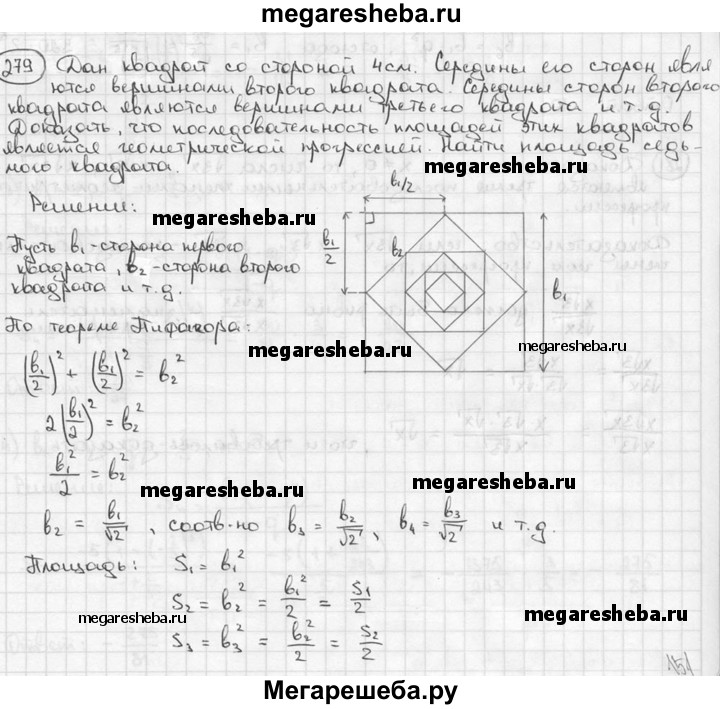 megaresheba.ru
279 Дан квадрат со стороной 4 см. Середины его сторон явля
ются вершинами второго квадрата. Середины сторон второго
квадрата являются вершинами третьего квадрата и т.д.
Доказать, что последовательность площадей этих квадратов
является геометрической прогрессией. Найти площадь седь-
мого квадрата.
megaresheba.ru
Решение:
megaresheba.ru
b₁/2
Пусть b₁-сторона первого
квадрата, b₂-сторона второго
квадрата и т.д.
b₁/2
b₂
b₁
По теореме Пифагора:
megaresheba.ru
megaresheba.ru
(b₁/2)² + (b₁/2)² = b₂²
2(b₁/2)² = b₂²
b₁²/2 = b₂²
megaresheba.ru
megaresheba.ru
b₂ = b₁/√2, соотв-но b₃ = b₂/√2, b₄ = b₃/√2 и т.д.
Площадь: S₁ = b₁²
S₂ = b₂² = b₁²/2 = S₁/2
megaresheba.ru
megaresheba.ru
S₃ = b₃² = b₂²/2 = S₂/2
151
Мегарешеба.ру